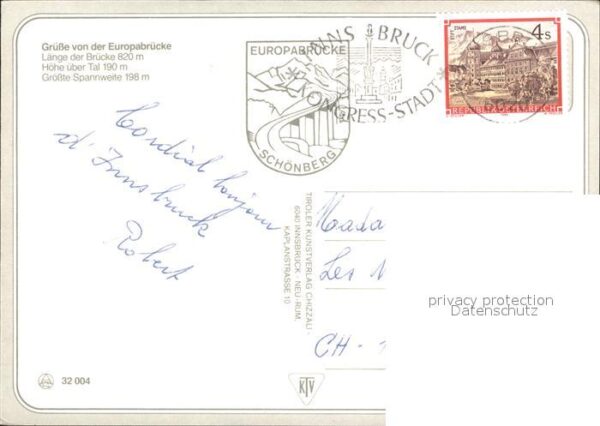 Grüße von der Europabrücke
Länge der Brücke 820 m
Höhe über Tal 190 m
Größte Spannweite 198 m
EUROPABRÜCKE
SCHÖNBERG
INNSBRUCK
KONGRESS-STADT
4 S
STIFT STAMS
REPUBLIK ÖSTERREICH
Cordial bonjour
d'Innsbruck
Robert
TIROLER KUNSTVERLAG CHIZZALI ·
6040 INNSBRUCK - NEU-RUM,
KAPLANSTRASSE 10
Mada
Les
CH - 1
privacy protection
Datenschutz
32 004
KTV